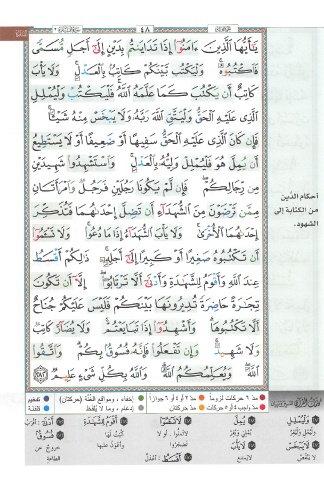 ٤٨
يَٰٓأَيُّهَا ٱلَّذِينَ ءَامَنُوٓا۟ إِذَا تَدَايَنتُم بِدَيْنٍ إِلَىٰٓ أَجَلٍ مُّسَمًّى
فَٱكْتُبُوهُ ۚ وَلْيَكْتُب بَّيْنَكُمْ كَاتِبٌۢ بِٱلْعَدْلِ ۚ وَلَا يَأْبَ
كَاتِبٌ أَن يَكْتُبَ كَمَا عَلَّمَهُ ٱللَّهُ ۚ فَلْيَكْتُبْ وَلْيُمْلِلِ
ٱلَّذِى عَلَيْهِ ٱلْحَقُّ وَلْيَتَّقِ ٱللَّهَ رَبَّهُۥ وَلَا يَبْخَسْ مِنْهُ شَيْـًٔا ۚ
فَإِن كَانَ ٱلَّذِى عَلَيْهِ ٱلْحَقُّ سَفِيهًا أَوْ ضَعِيفًا أَوْ لَا يَسْتَطِيعُ
أَن يُمِلَّ هُوَ فَلْيُمْلِلْ وَلِيُّهُۥ بِٱلْعَدْلِ ۚ وَٱسْتَشْهِدُوا۟ شَهِيدَيْنِ
مِن رِّجَالِكُمْ ۖ فَإِن لَّمْ يَكُونَا رَجُلَيْنِ فَرَجُلٌ وَٱمْرَأَتَانِ
مِمَّن تَرْضَوْنَ مِنَ ٱلشُّهَدَآءِ أَن تَضِلَّ إِحْدَىٰهُمَا فَتُذَكِّرَ
إِحْدَىٰهُمَا ٱلْأُخْرَىٰ ۚ وَلَا يَأْبَ ٱلشُّهَدَآءُ إِذَا مَا دُعُوا۟ ۚ وَلَا تَسْـَٔمُوٓا۟
أَن تَكْتُبُوهُ صَغِيرًا أَوْ كَبِيرًا إِلَىٰٓ أَجَلِهِۦ ۚ ذَٰلِكُمْ أَقْسَطُ
عِندَ ٱللَّهِ وَأَقْوَمُ لِلشَّهَٰدَةِ وَأَدْنَىٰٓ أَلَّا تَرْتَابُوٓا۟ ۖ إِلَّآ أَن تَكُونَ
تِجَٰرَةً حَاضِرَةً تُدِيرُونَهَا بَيْنَكُمْ فَلَيْسَ عَلَيْكُمْ جُنَاحٌ
أَلَّا تَكْتُبُوهَا ۗ وَأَشْهِدُوٓا۟ إِذَا تَبَايَعْتُمْ ۚ وَلَا يُضَآرَّ كَاتِبٌ
وَلَا شَهِيدٌ ۚ وَإِن تَفْعَلُوا۟ فَإِنَّهُۥ فُسُوقٌۢ بِكُمْ ۗ وَٱتَّقُوا۟
ٱللَّهَ ۖ وَيُعَلِّمُكُمُ ٱللَّهُ ۗ وَٱللَّهُ بِكُلِّ شَىْءٍ عَلِيمٌ ٢٨٢
أحكام الدَّين
من الكتابة إلى
الشهود.
مدّ ٦ حركات لزوماً مدّ ٢ أو ٤ أو ٦ جوازاً إخفاء، ومواقع الغُنَّة (حركتان) تفخيم
مدّ واجب ٤ أو ٥ حركات مدّ حركتان إدغام، وما لا يُلفَظ قلقلة